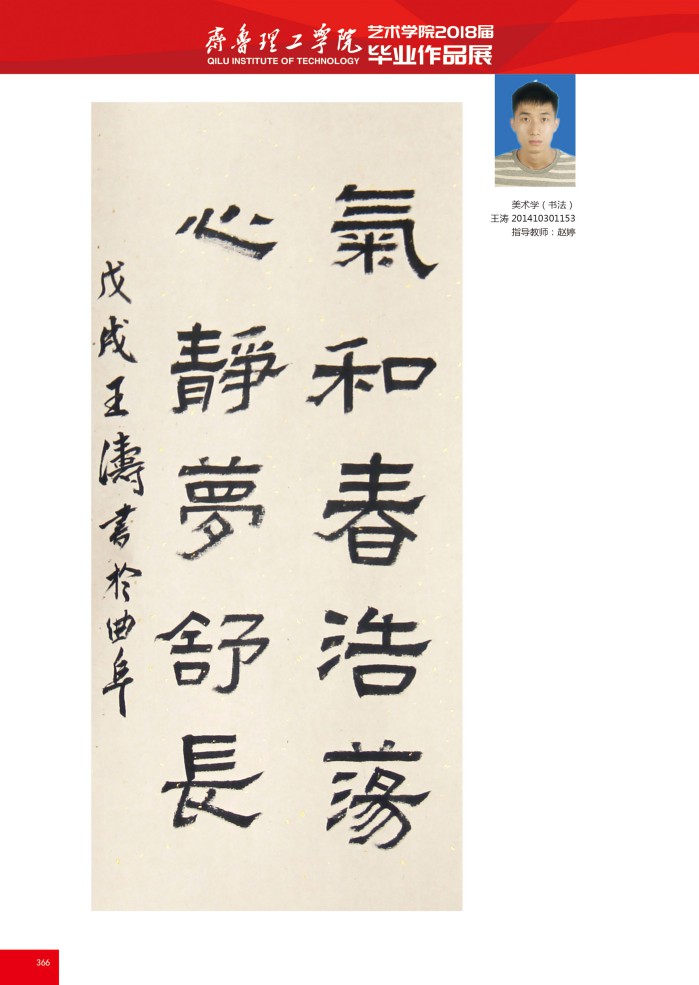 齊魯理工學院
QILU INSTITUTE OF TECHNOLOGY
艺术学院2018届
毕业作品展
美术学（书法）
王涛 201410301153
指导教师：赵婷
氣和春浩蕩
心靜夢舒長
戊戌王濤書於曲阜
366